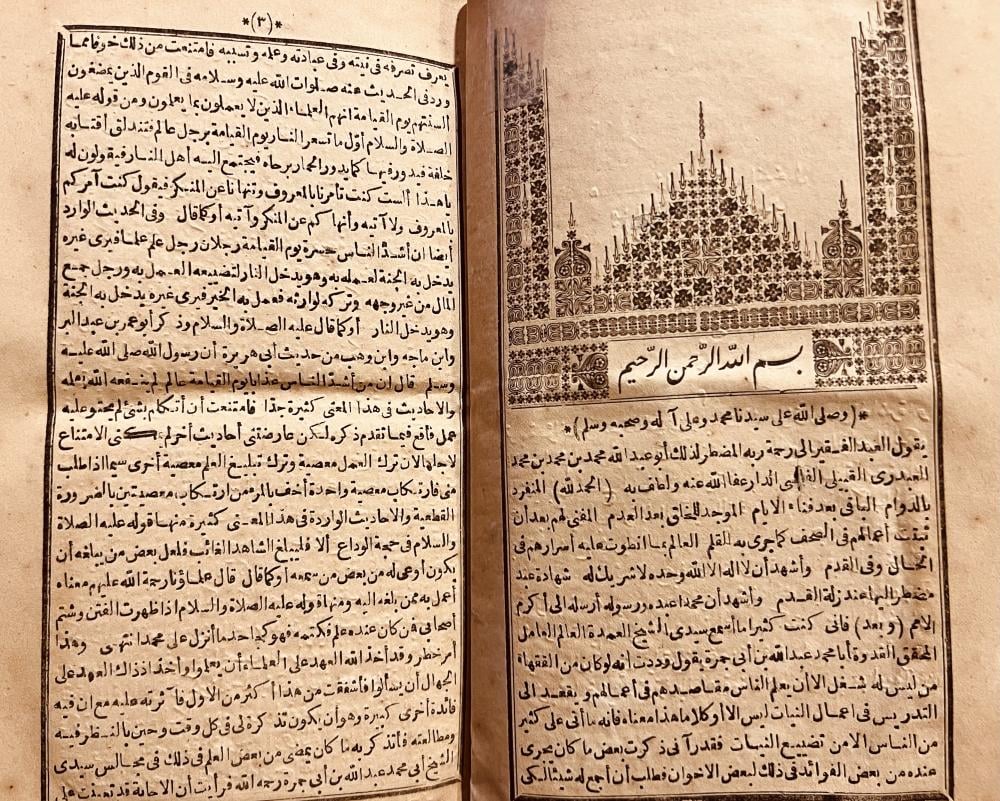 بسم الله الرحمن الرحيم
*(وصلى الله على سيدنا محمد وعلى آله وصحبه وسلم)*
يقول العبد الفقير الى رحمة ربه المضطر لذلك أبو عبد الله محمد بن محمد بن محمد
العبدرى القبيلى الفاسى الدار عفا الله عنه ولطف به (الحمد لله) المنفرد
بالدوام الباقى بعد فناء الايام الموجد للخلق بعد العدم المفنى لهم بعد أن
ثبتت أعمالهم فى الصحف كما جرى به القلم العالم بما انطوت عليه أسرارهم فى
الحال وفى القدم وأشهد أن لا اله الا الله وحده لا شريك له شهادة عبد
مضطر اليها عند زلة القدم وأشهد أن محمدا عبده ورسوله أرسله الى أكرم
الامم (وبعد) فانى كنت كثيرا ما أسمع سيدى الشيخ العمدة العالم العامل
المحقق القدوة أبا محمد عبد الله بن أبى جمرة يقول وددت أنه لو كان من الفقهاء
من ليس له شغل الا أن يعلم الناس مقاصدهم فى أعمالهم ويقعد الى
التدريس فى اعمال النيات ليس الا أو كلاما هذا معناه فانه ما أتى على كثير
من الناس الا من تضييع النيات فقد رآنى ذكرت بعض ما كان يجرى
عنده من بعض الفوائد فى ذلك لبعض الاخوان فطلب أن أجمع له شيئا لكى
*(٣)*
يعرف تصرفه فى نيته وفى عبادته وعلمه وتسببه فامتنعت من ذلك خوفا مما
ورد فى الحديث عنه صلوات الله عليه وسلامه فى القوم الذين يمضغون
ألسنتهم يوم القيامة انهم العلماء الذين لا يعملون بما يعلمون ومن قوله عليه
الصلاة والسلام أول ما تسعر النار يوم القيامة برجل عالم فتندلق أقتابه
خلفه فيدور فيها كما يدور الحمار برحاه فيجتمع اليه أهل النار فيقولون له
يا هذا ألست كنت تأمرنا بالمعروف وتنهانا عن المنكر فيقول كنت آمركم
بالمعروف ولا آتيه وأنهاكم عن المنكر وآتيه أو كما قال وفى الحديث الوارد
أيضا ان أشد الناس حسرة يوم القيامة رجلان رجل علم علما فيرى غيره
يدخل به الجنة لعمله به وهو يدخل النار لتضييعه العمل به ورجل جمع
المال من غير وجهه وتركه لوارثه فعمل به الخير فيرى غيره يدخل به الجنة
وهو يدخل النار أو كما قال عليه الصلاة والسلام وذكر أبو عمر بن عبد البر
وابن ماجه وابن وهب من حديث أبى هريرة أن رسول الله صلى الله عليه
وسلم قال ان من أشد الناس عذابا يوم القيامة عالم لم ينفعه الله بعلمه
والاحاديث فى هذا المعنى كثيرة جدا فامتنعت أن أتكلم بشئ لم يحتو عليه
عمل فأقع فيما تقدم ذكره لكن عارضتنى أحاديث أخر لم يمكنى الامتناع
لاجلها لان ترك العمل معصية وترك تبليغ العلم معصية أخرى سيما اذا طلب
منى فارتكاب معصية واحدة أخف بالمرء من ارتكاب معصيتين بالضرورة
القطعية والاحاديث الواردة فى هذا المعنى كثيرة منها قوله عليه الصلاة
والسلام فى حجة الوداع ألا فليبلغ الشاهد الغائب فلعل بعض من يبلغه أن
يكون أوعى له من بعض من سمعه أو كما قال قال علماؤنا رحمة الله عليهم معناه
أعمل به ممن بلغه اليه ومنها قوله عليه الصلاة والسلام اذا ظهرت الفتن وشتم
أصحابى فن كان عنده علم فكتمه فهو كجاحد ما أنزل على محمد انتهى وهذا
أمر خطر وقد أخذ الله العهد على العلماء أن يعلموا وأخذ اذ ذاك العهد على
الجهال أن يسألوا فأشفقت من هذا أكثر من الاول فآثرته عليه مع ان فيه
فائدة أخرى كبيرة وهو أن يكون تذكرة لى فى كل وقت وحين بالنظر فيه
ومطالعته فأتذكر به ما كان يمضى من بعض العلم فى ذلك فى مجالس سيدى
الشيخ أبى محمد عبد الله بن أبى جمرة رحمه الله فرأيت أن الاجابة قد تعينت على